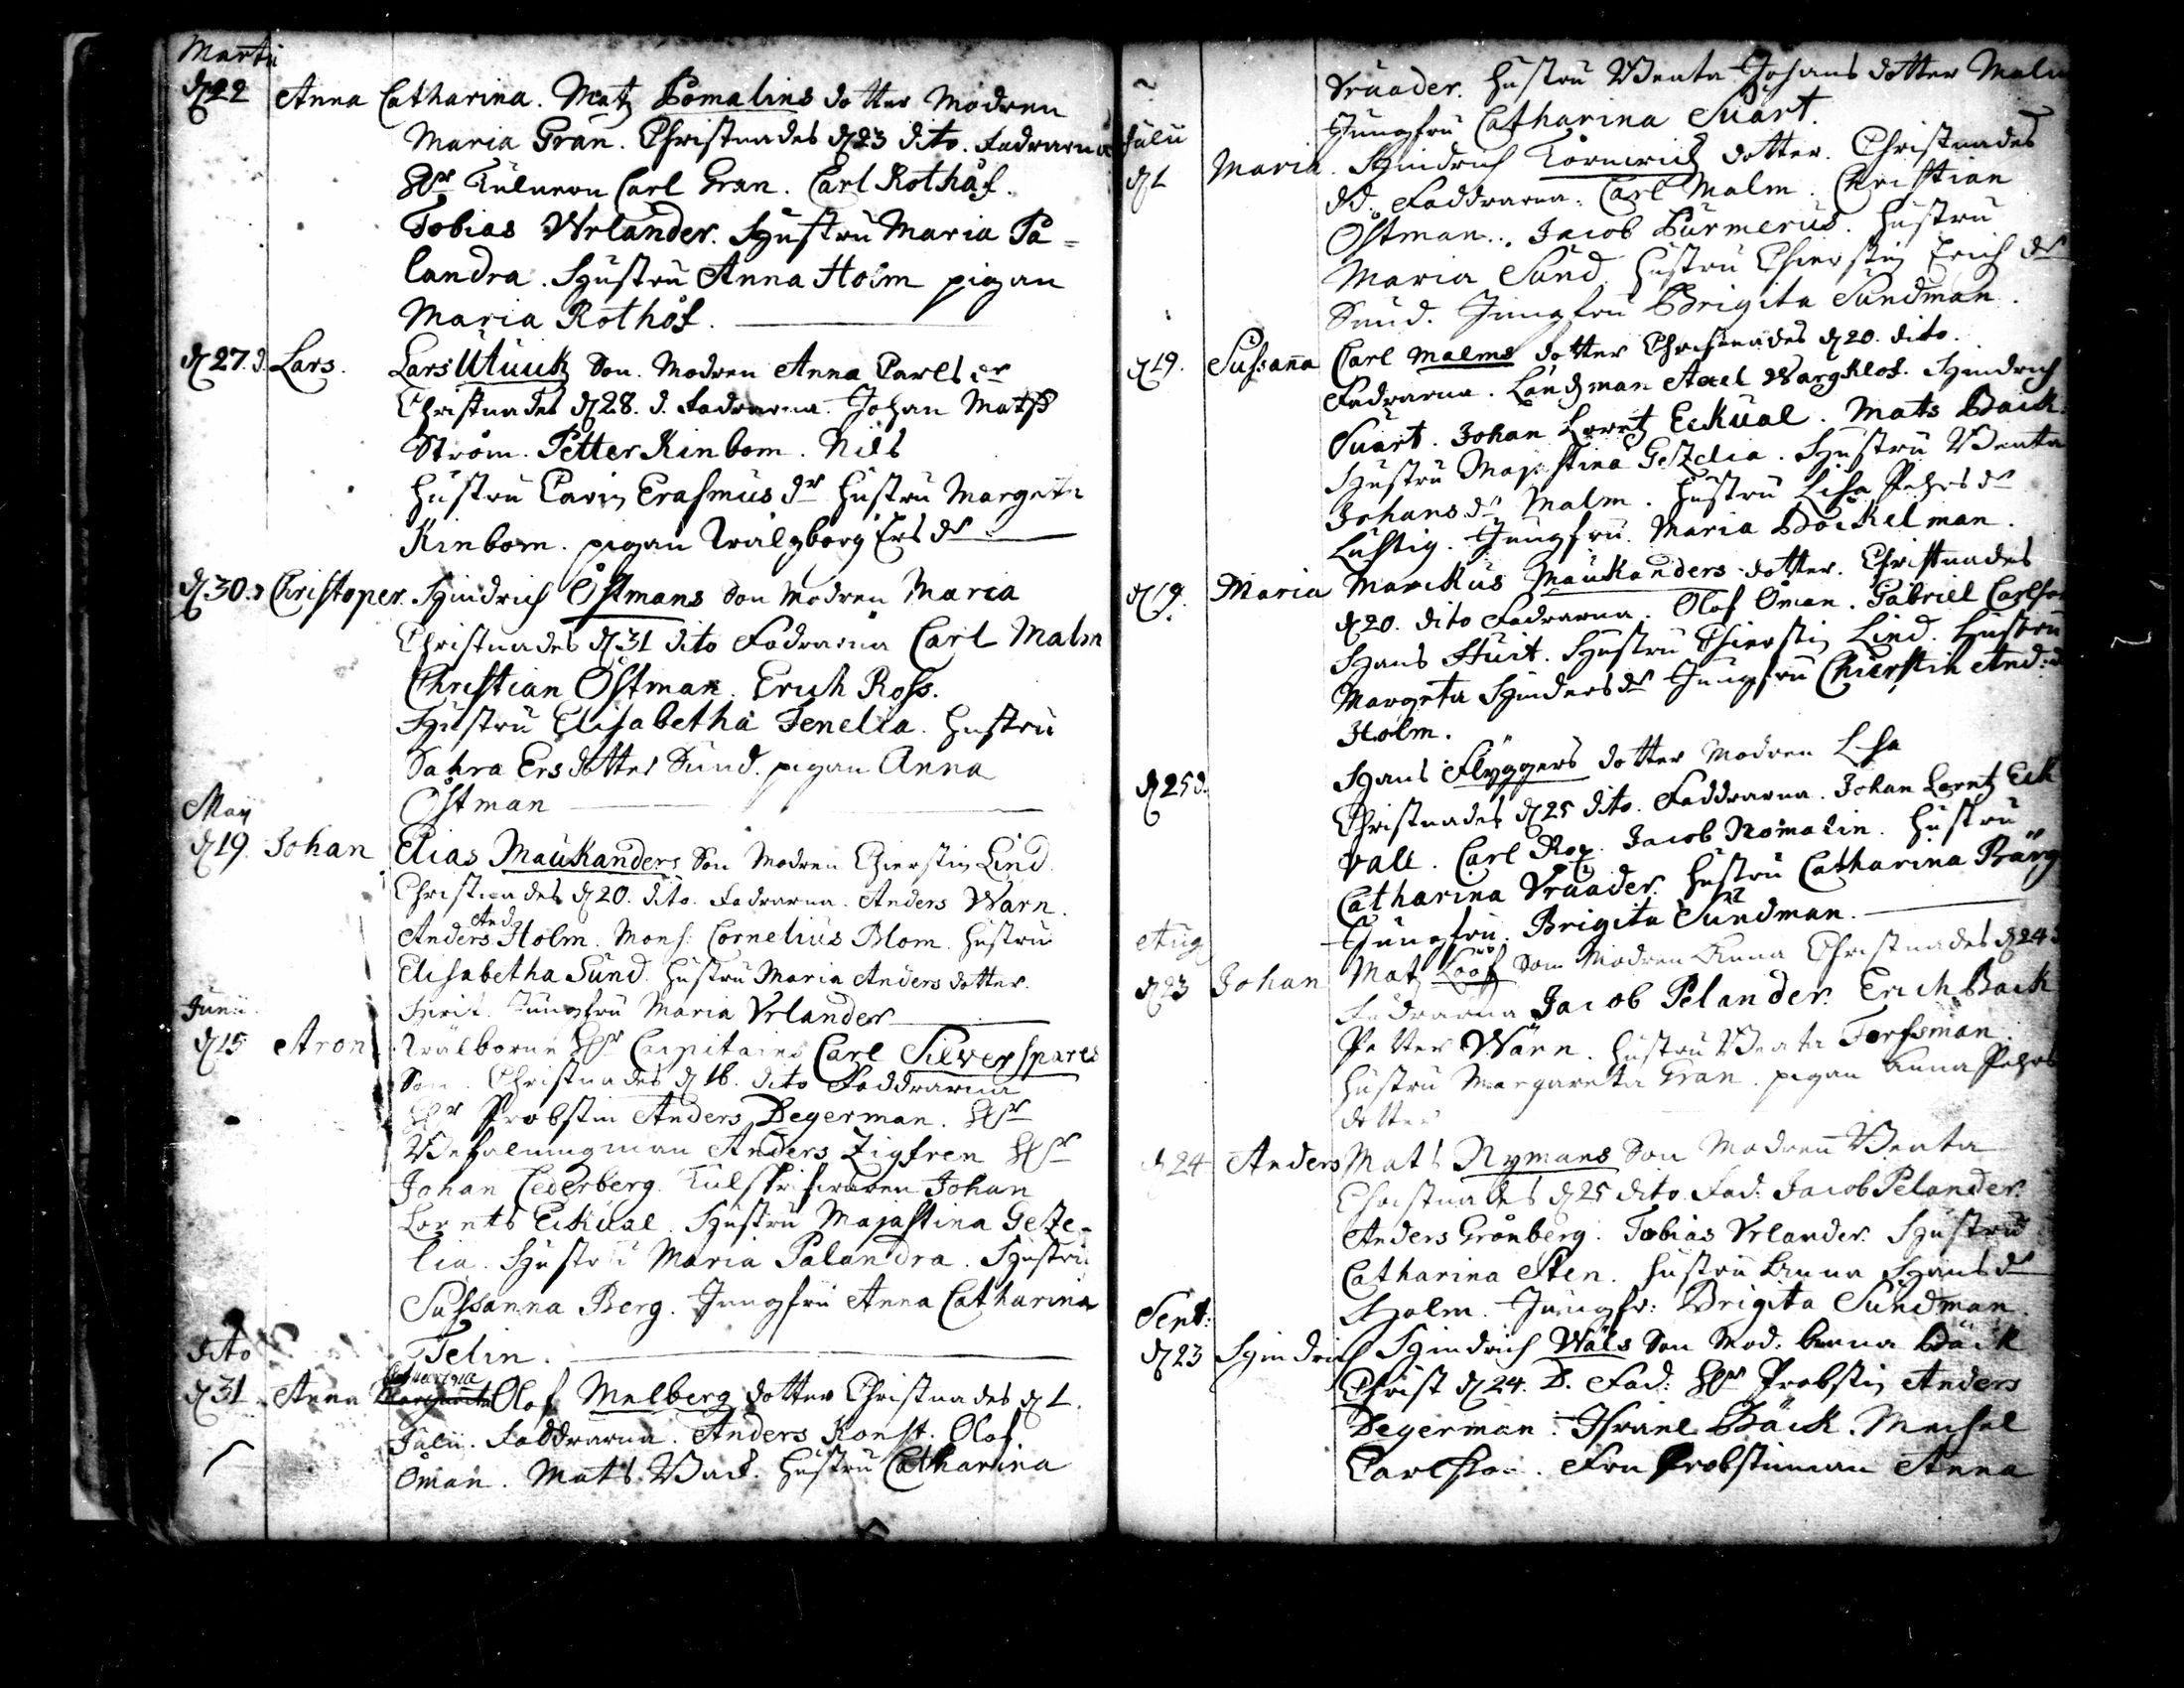 Martii
d 22 Anna Catharina. Matz Pomalins dotter modren
Maria Gran. Christnades d 23 dito. Fadrarna
Hr Tulneren Carl Gran. Carl Rothåf.
Tobias Vrlander. Hustru Maria Pa=
landra. Hustru Anna Holm pigan
Maria Rothöf.
d 27. d. Lars. Lars Utuuck Son. Modren Anna Carls dr
Christnades d 28. d. Fadrarna. Johan Matss
Ström. Petter Kinbom. Nils
Hustru Carin Erasmus dr Hustru Margeta
Kinbom. pigan Wälgborg Ers dr
d 30. Christoper. Hindrich Östmans Son modren Maria
Christnades d 31 dito Fadrarna Carl Malm
Christian Östman. Erich Ross.
Hustru Elisabetha Tenelia. Hustru
Sahra Ersdotter Sund. pigan Anna
Östman
May
d 19. Johan Elias Maukanders Son Modren Chierstin Lind.
Christnades d 20. dito. Fadrarna. Anders Wärn.
Anders And Holm. Mons: Cornelius Blom. Hustru
Elisabetha Sund. Hustru Maria Anders dotter
Junii
Jungfru Maria Vrlander
d 15 Aron Wälborne Hr Capitaine Carl Silversparts
Son. Christnades d 16. dito Faddrarna
Hr Probsten Anders Degerman. Hr
Befalningman Anders Zigfren Hr
Johan Cederberg. Tulskrifwaren Johan
Lorents Eckual. Hustru Majastina Geze=
lia. Hustru Maria Palandra. Hustru
Sussanna Berg. Jungfru Anna Catharina
Telin.
dito
d 31 Anna Catharina Olof Melberg dotter Christnades d 1.
Julii. Faddrarna. Anders Konst. Olof
Öman. Mats Back. Hustru Catharina
Vruader. Hustru Beata Johans dotter Malm
Jungfru Catharina Suart.
Julii
d 1 Maria. Hindrich Törnwich dotter. Christnades
d d. Faddrarna. Carl Malm. Christian
Östman. Jacob Purmerus. Hustru
Maria Sund. Hustru Chierstin Erich dr
Sund. Jungfru Brigita Sundman.
d 19. Sussanna Carl Malms dotter Christnades d 20. dito.
Fadrarna. Landzman Axel Wargklof. Hindrich
Suart. Johan Lorentz Eckual. Mats Back.
Hustru Majastina Gezelia. Hustru Beata
Johans dr Malm. Hustru Lisa Pehrs dr
Lustig. Jungfru Maria Böckelman.
d 19. Maria Marckus Maukanders dotter. Christnades
d 20. dito Fadrarna. Olof Öman. Gabriel Carlson
Hans Huit. Hustru Chierstin Lind. Hustru
Margeta Hinders dr Jungfru Chierstin And: d
Holm.
d 25 d. Hans Flyggers dotter Modren Lisa
Christnades d 25 dito. Faddrarna. Johan Lorentz Eck
vall. Carl Rox. Jacob Nomalin. Hustru
Catharina Vruader. Hustru Catharina Bärg
Jungfru Brigita Sundman.
Aug
d 23 Johan Matz Loof Son Modren Anna Christnades d 24
Fadrarna Jacob Pelander. Erich Back
Petter Wärn. Hustru Beata Forssman
Hustru Margareta Gran. pigan Anna Pehrs
dotter
d 24 Anders Mats Nymans Son Modren Beata
Christnades d 25 dito. Fad: Jacob Pelander.
Anders Grönberg. Tobias Vrlander. Hustru
Catharina Sten. Hustru Anna Hans dr
Holm. Jungfr: Brigita Sundman.
Sept:
d 23 Hindrich Hindrich Wäls Son Mod: Anna Bäck
Christ d 24. D. Fad: Hr Probstin Anders
Degerman. Israel Bäck. Mechel
Carlsson. Fru Probstinnan Anna